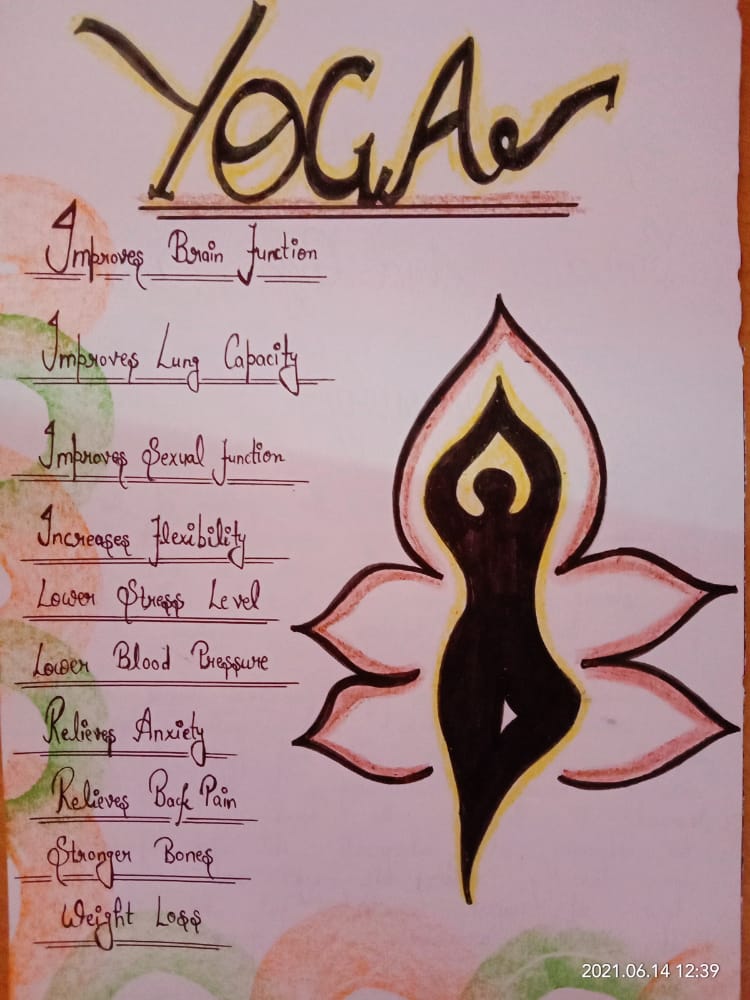 YOGA
Improves Brain Function
Improves Lung Capacity
Improves Sexual Function
Increases Flexibility
Lower Stress Level
Lower Blood Pressure
Relieves Anxiety
Relieves Back Pain
Stronger Bones
Weight Loss
2021.06.14 12:39